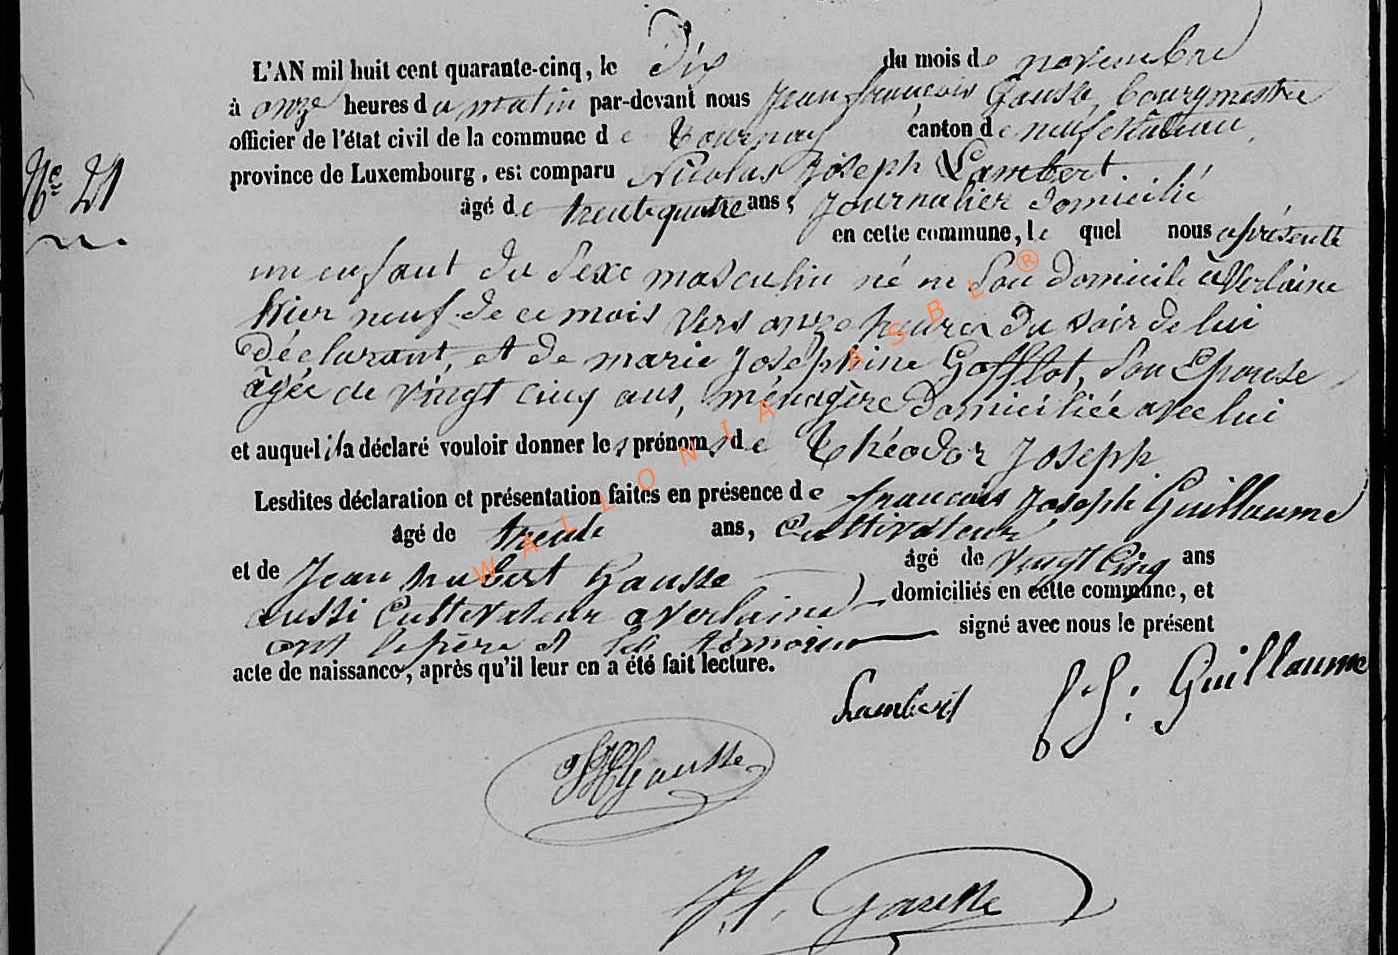 L'AN mil huit cent quarante-cinq, le dix du mois de novembre
à onze heures du matin par-devant nous Jean françois Gausse, bourgmestre
officier de l'état civil de la commune de Tournay canton de neufchâteau,
province de Luxembourg, est comparu Nicolas Joseph Lambert
N° 21
âgé de trente quatre ans, Journalier domicilié
en cette commune, le quel nous a présenté
un enfant du sexe masculin né en son domicile à Verlaine
hier neuf de ce mois vers onze heures du soir de lui
déclarant, et de marie Joséphine Gofflot, son Epouse,
âgée de vingt cinq ans, ménagère domiciliée avec lui
et auquel il a déclaré vouloir donner les prénoms de Théodor Joseph
Lesdites déclaration et présentation faites en présence de françois Joseph Guillaume
âgé de trente ans, Cultivateur,
et de Jean hubert Gausse âgé de vingt cinq ans
aussi Cultivateur a Verlaine domiciliés en cette commune, et
ont le père et les témoins signé avec nous le présent
acte de naissance, après qu'il leur en a été fait lecture.
Lambert f J: Guillaume
JH Gausse
J f. Gausse
WALLONIA ASBL ®